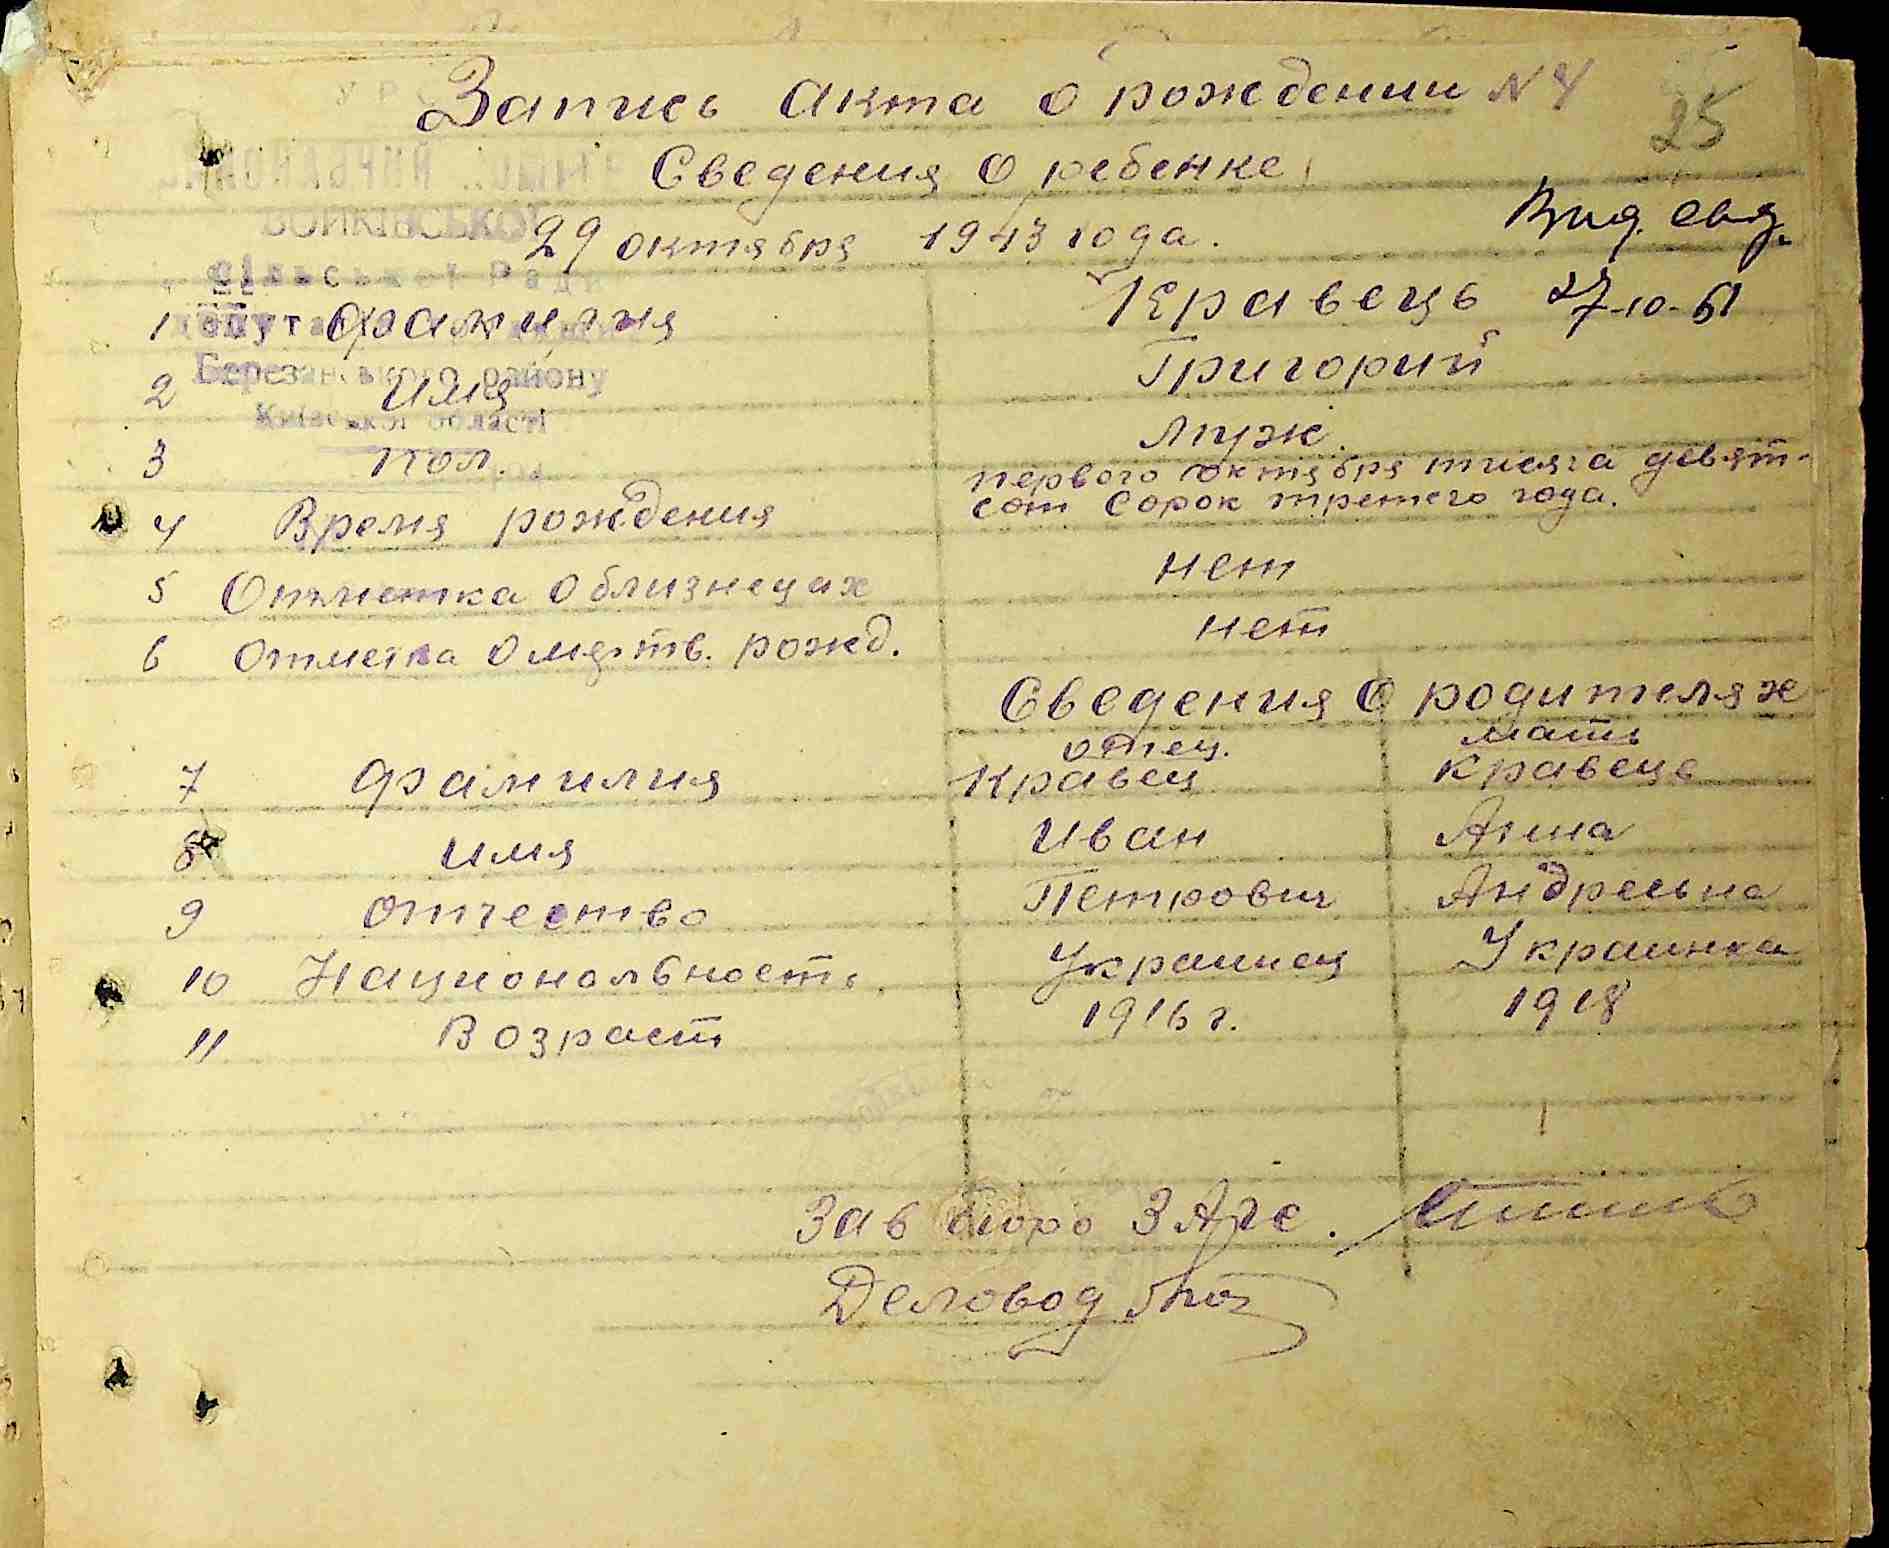 Запись акта о рождении N 4
25
Сведения о ребенке
29 октября 1943 года.
Вид. свид.
27-10-61
Войківської
сільської Ради
Березанського району
Київської області
1 фамилия Кравець
2 имя Григорий
3 пол. муж.
4 Время рождения первого октября тисяча девят-
сот сорок третего года.
5 Отметка о близнецах нет
6 Отметка о мертв. рожд. нет
Сведения о родителях
отец. мать
7 фамилия Кравец Кравець
8 имя Иван Анна
9 отчество Петрович Андреевна
10 Национольность Украинец Украинка
11 Возраст 1916 г. 1918
Зав бюро ЗАГС.
Деловод